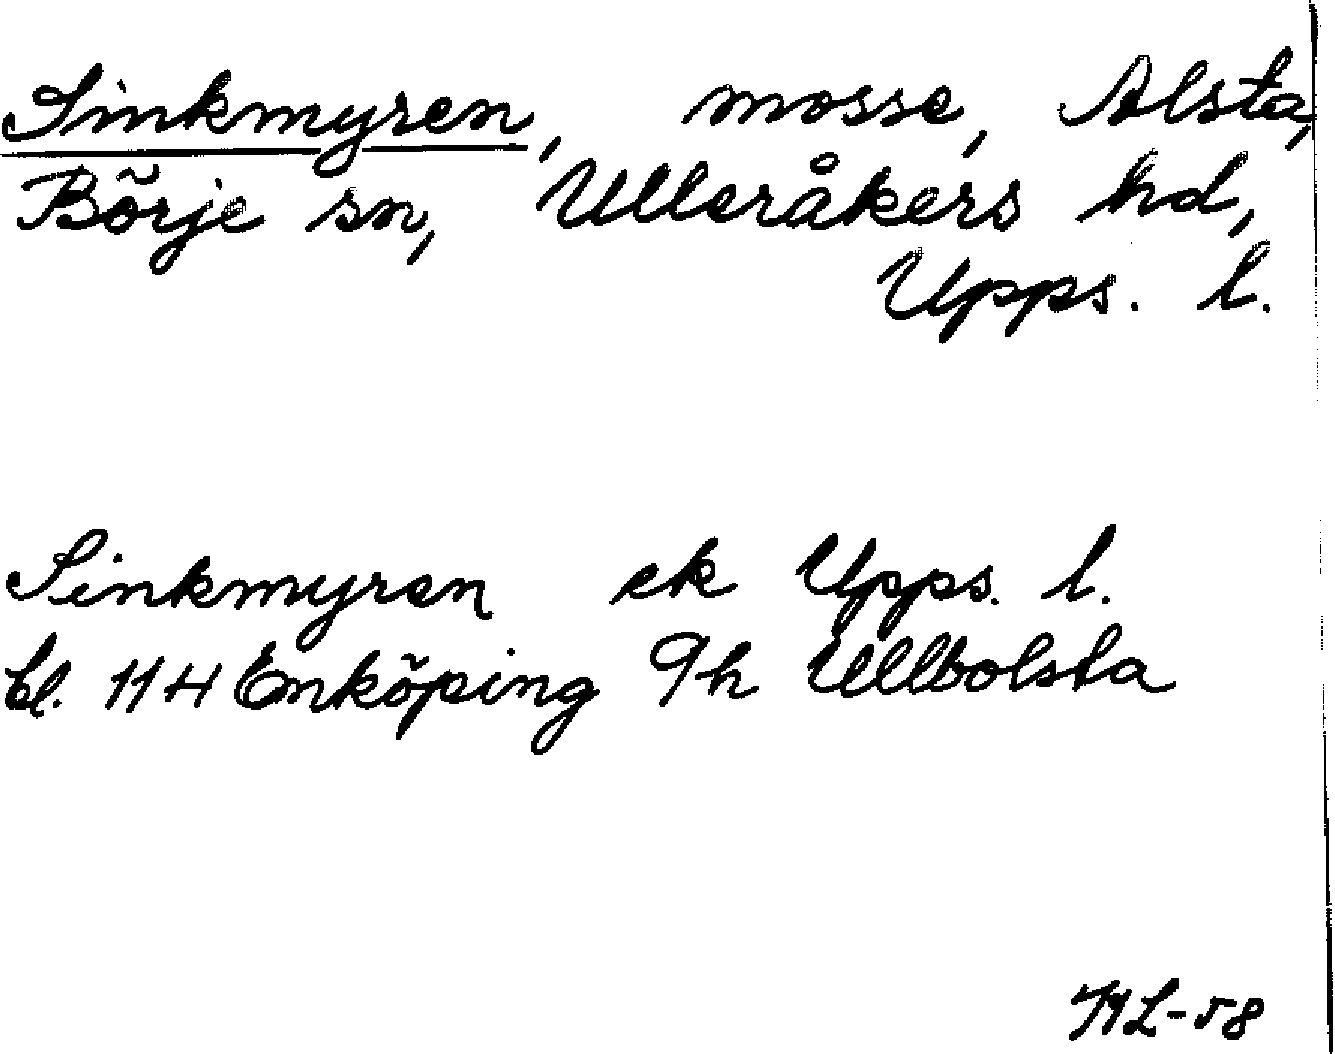 Sinkmyren, mosse, Alsta,
Börje sn, Ulleråkers hd,
Upps. l.
Sinkmyren ek Upps. l.
bl. 11H Enköping 9h Ullbolsta
ML-58